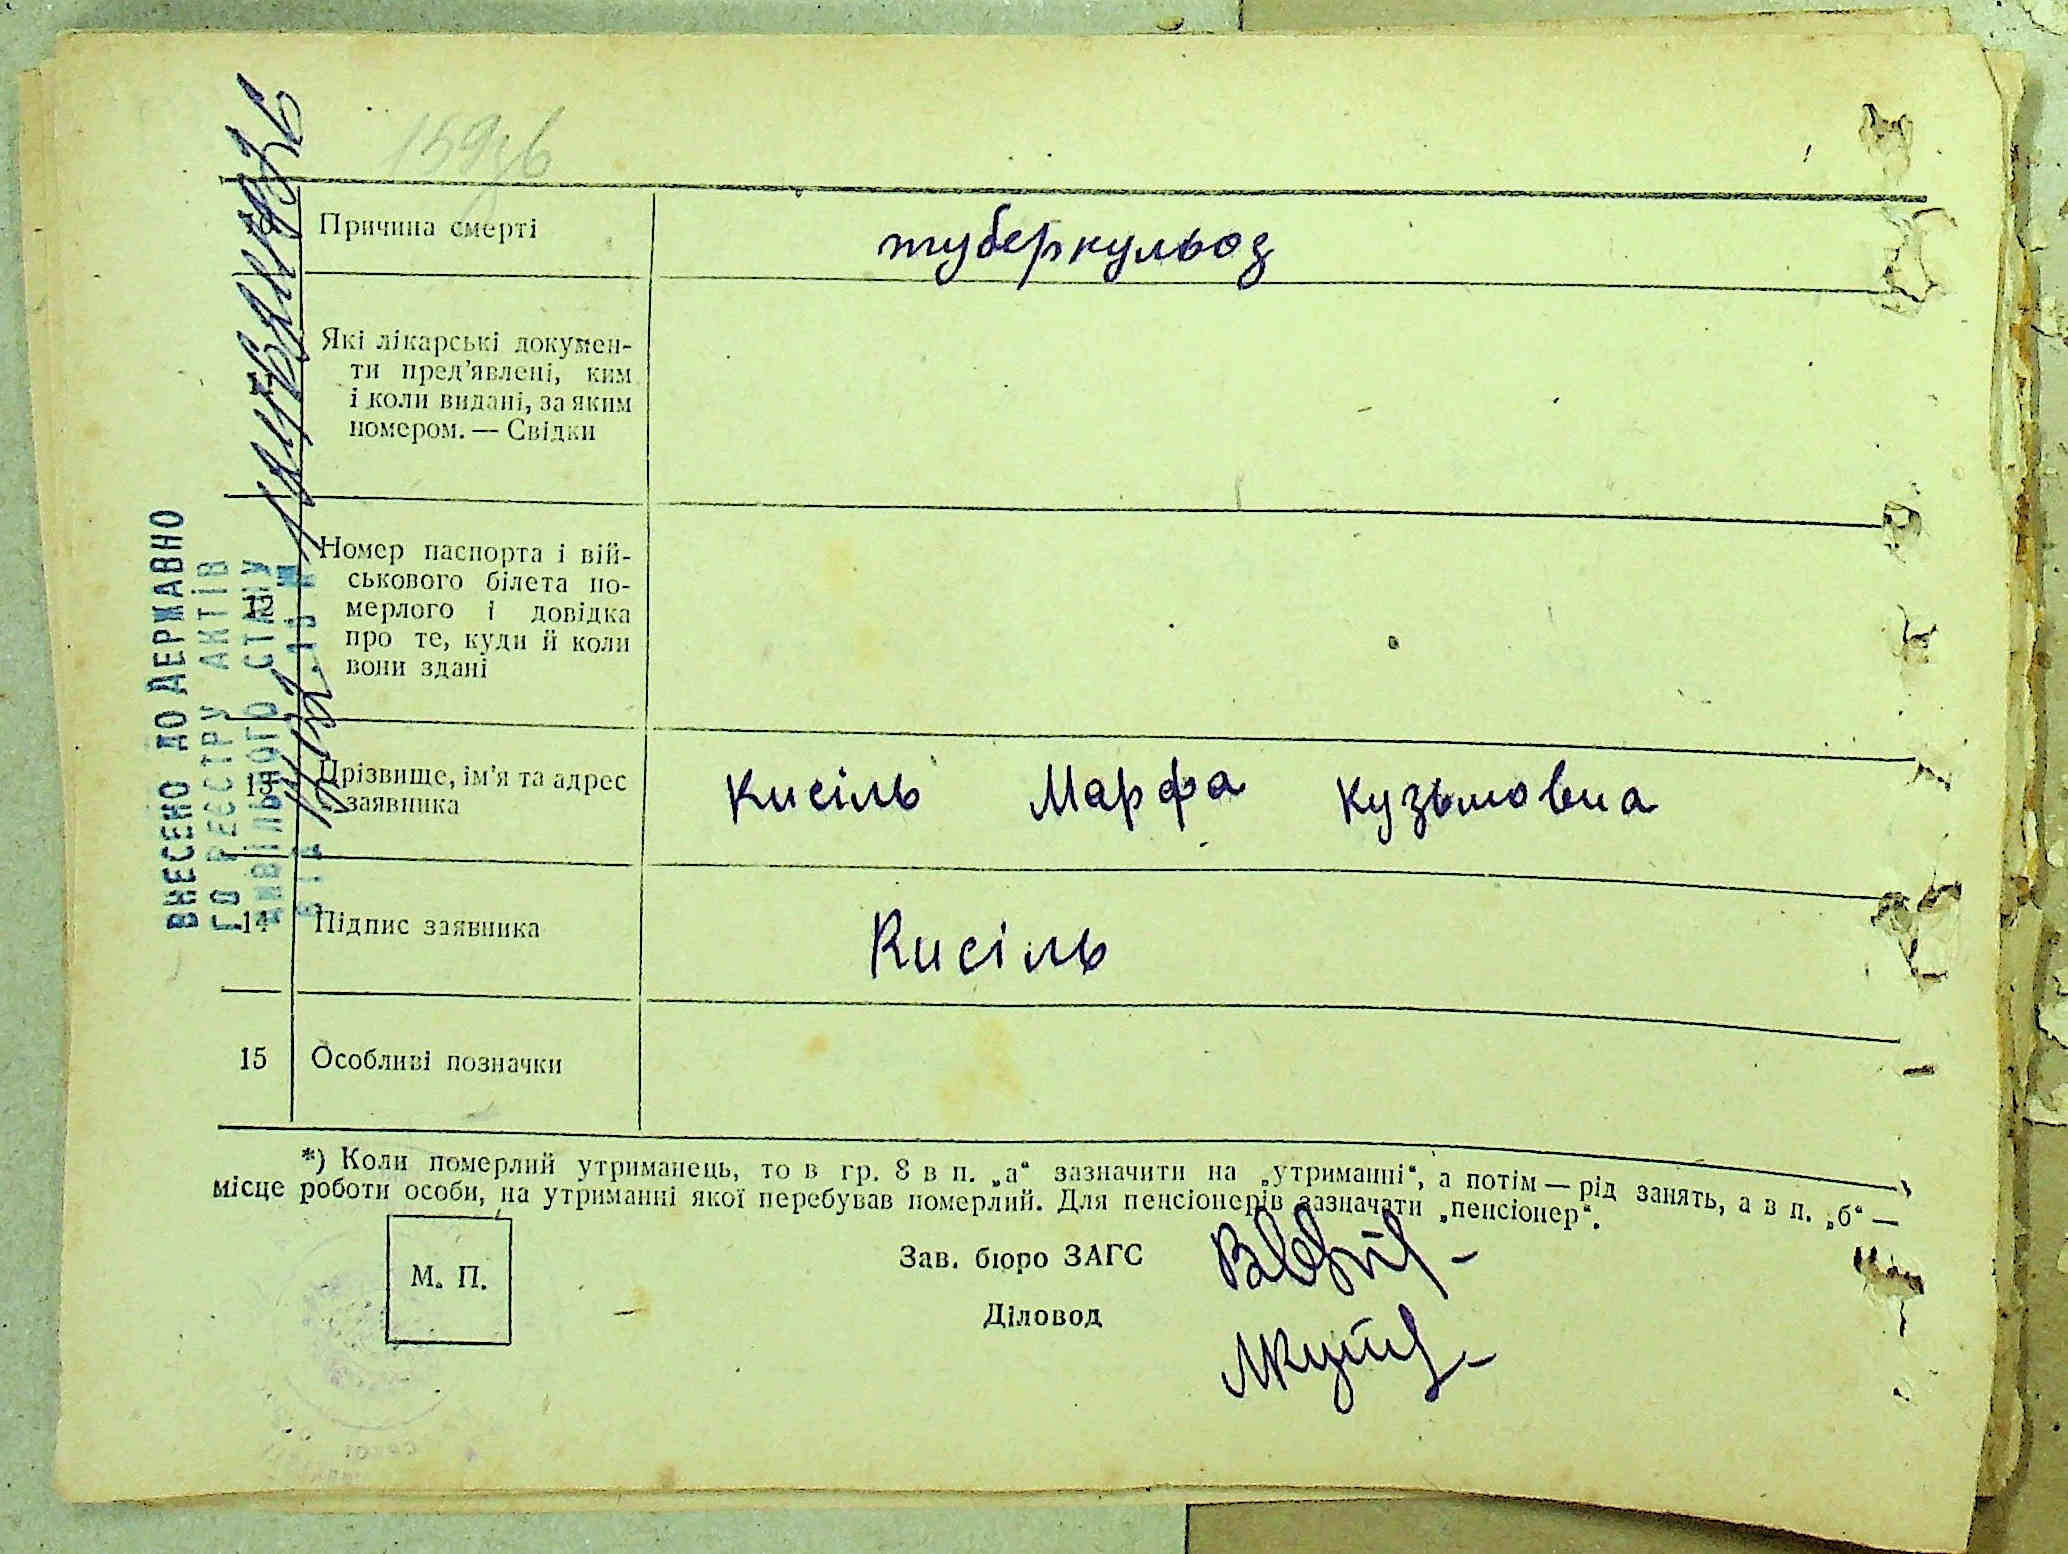 159зв
Причина смерті
туберкульоз
Які лікарські докумен-
ти пред’явлені, ким
і коли видані, за яким
номером. — Свідки
12
Номер паспорта і вій-
ськового білета по-
мерлого і довідка
про те, куди й коли
вони здані
13
Прізвище, ім’я та адрес
заявника
Кисіль Марфа Кузьмовна
14
Підпис заявника
Кисіль
15
Особливі позначки
*) Коли померлий утриманець, то в гр. 8 в п. „а“ зазначити на „утриманні“, а потім — рід занять, а в п. „б“ —
місце роботи особи, на утриманні якої перебував померлий. Для пенсіонерів зазначати „пенсіонер“.
М. П.
Зав. бюро ЗАГС
Діловод
ВНЕСЕНО ДО ДЕРЖАВНО
ГО РЕЄСТРУ АКТІВ
ЦИВІЛЬНОГО СТАНУ